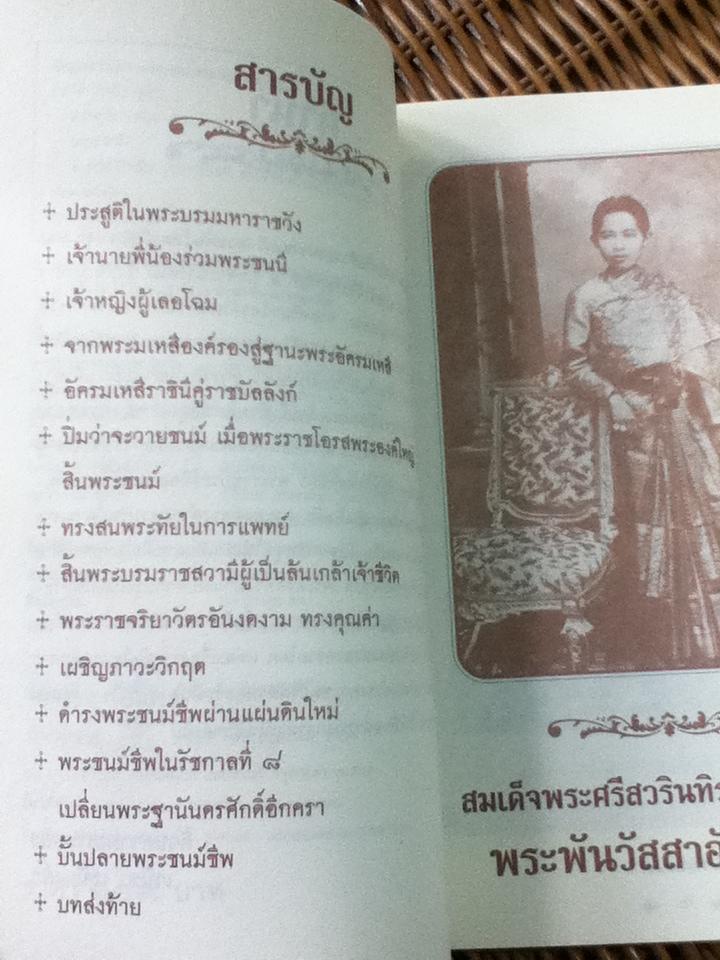 สารบัญ
ประสูติในพระบรมมหาราชวัง
เจ้านายพี่น้องร่วมพระชนนี
เจ้าหญิงผู้เลอโฉม
จากพระมเหสีองค์รองสู่ฐานะพระอัครมเหสี
อัครมเหสีราชินีคู่ราชบัลลังก์
ปิ่มว่าจะวายชนม์ เมื่อพระราชโอรสพระองค์ใหญ่
สิ้นพระชนม์
ทรงสนพระทัยในการแพทย์
สิ้นพระบรมราชสวามีผู้เป็นล้นเกล้าเจ้าชีวิต
พระราชจริยาวัตรอันงดงาม ทรงคุณค่า
เผชิญภาวะวิกฤต
ดำรงพระชนม์ชีพผ่านแผ่นดินใหม่
พระชนม์ชีพในรัชกาลที่ ๘
เปลี่ยนพระฐานันดรศักดิ์อีกครา
บั้นปลายพระชนม์ชีพ
บทส่งท้าย
สมเด็จพระศรีสวรินทิร
พระพันวัสสาอั